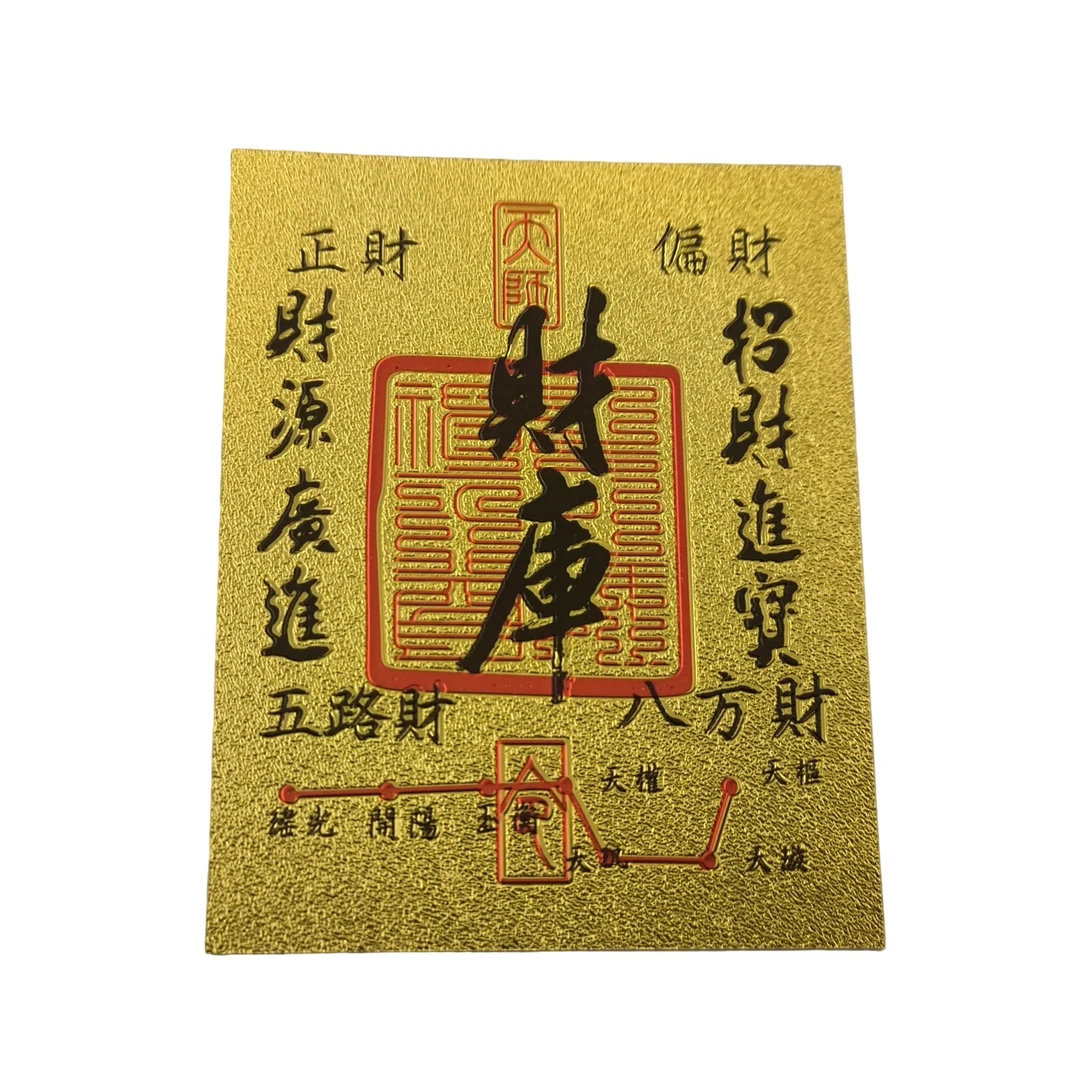 天師
正財
偏財
財庫
招財進寶
財源廣進
五路財
八方財
天權
天樞
瑤光
開陽
玉衡
天璇
令